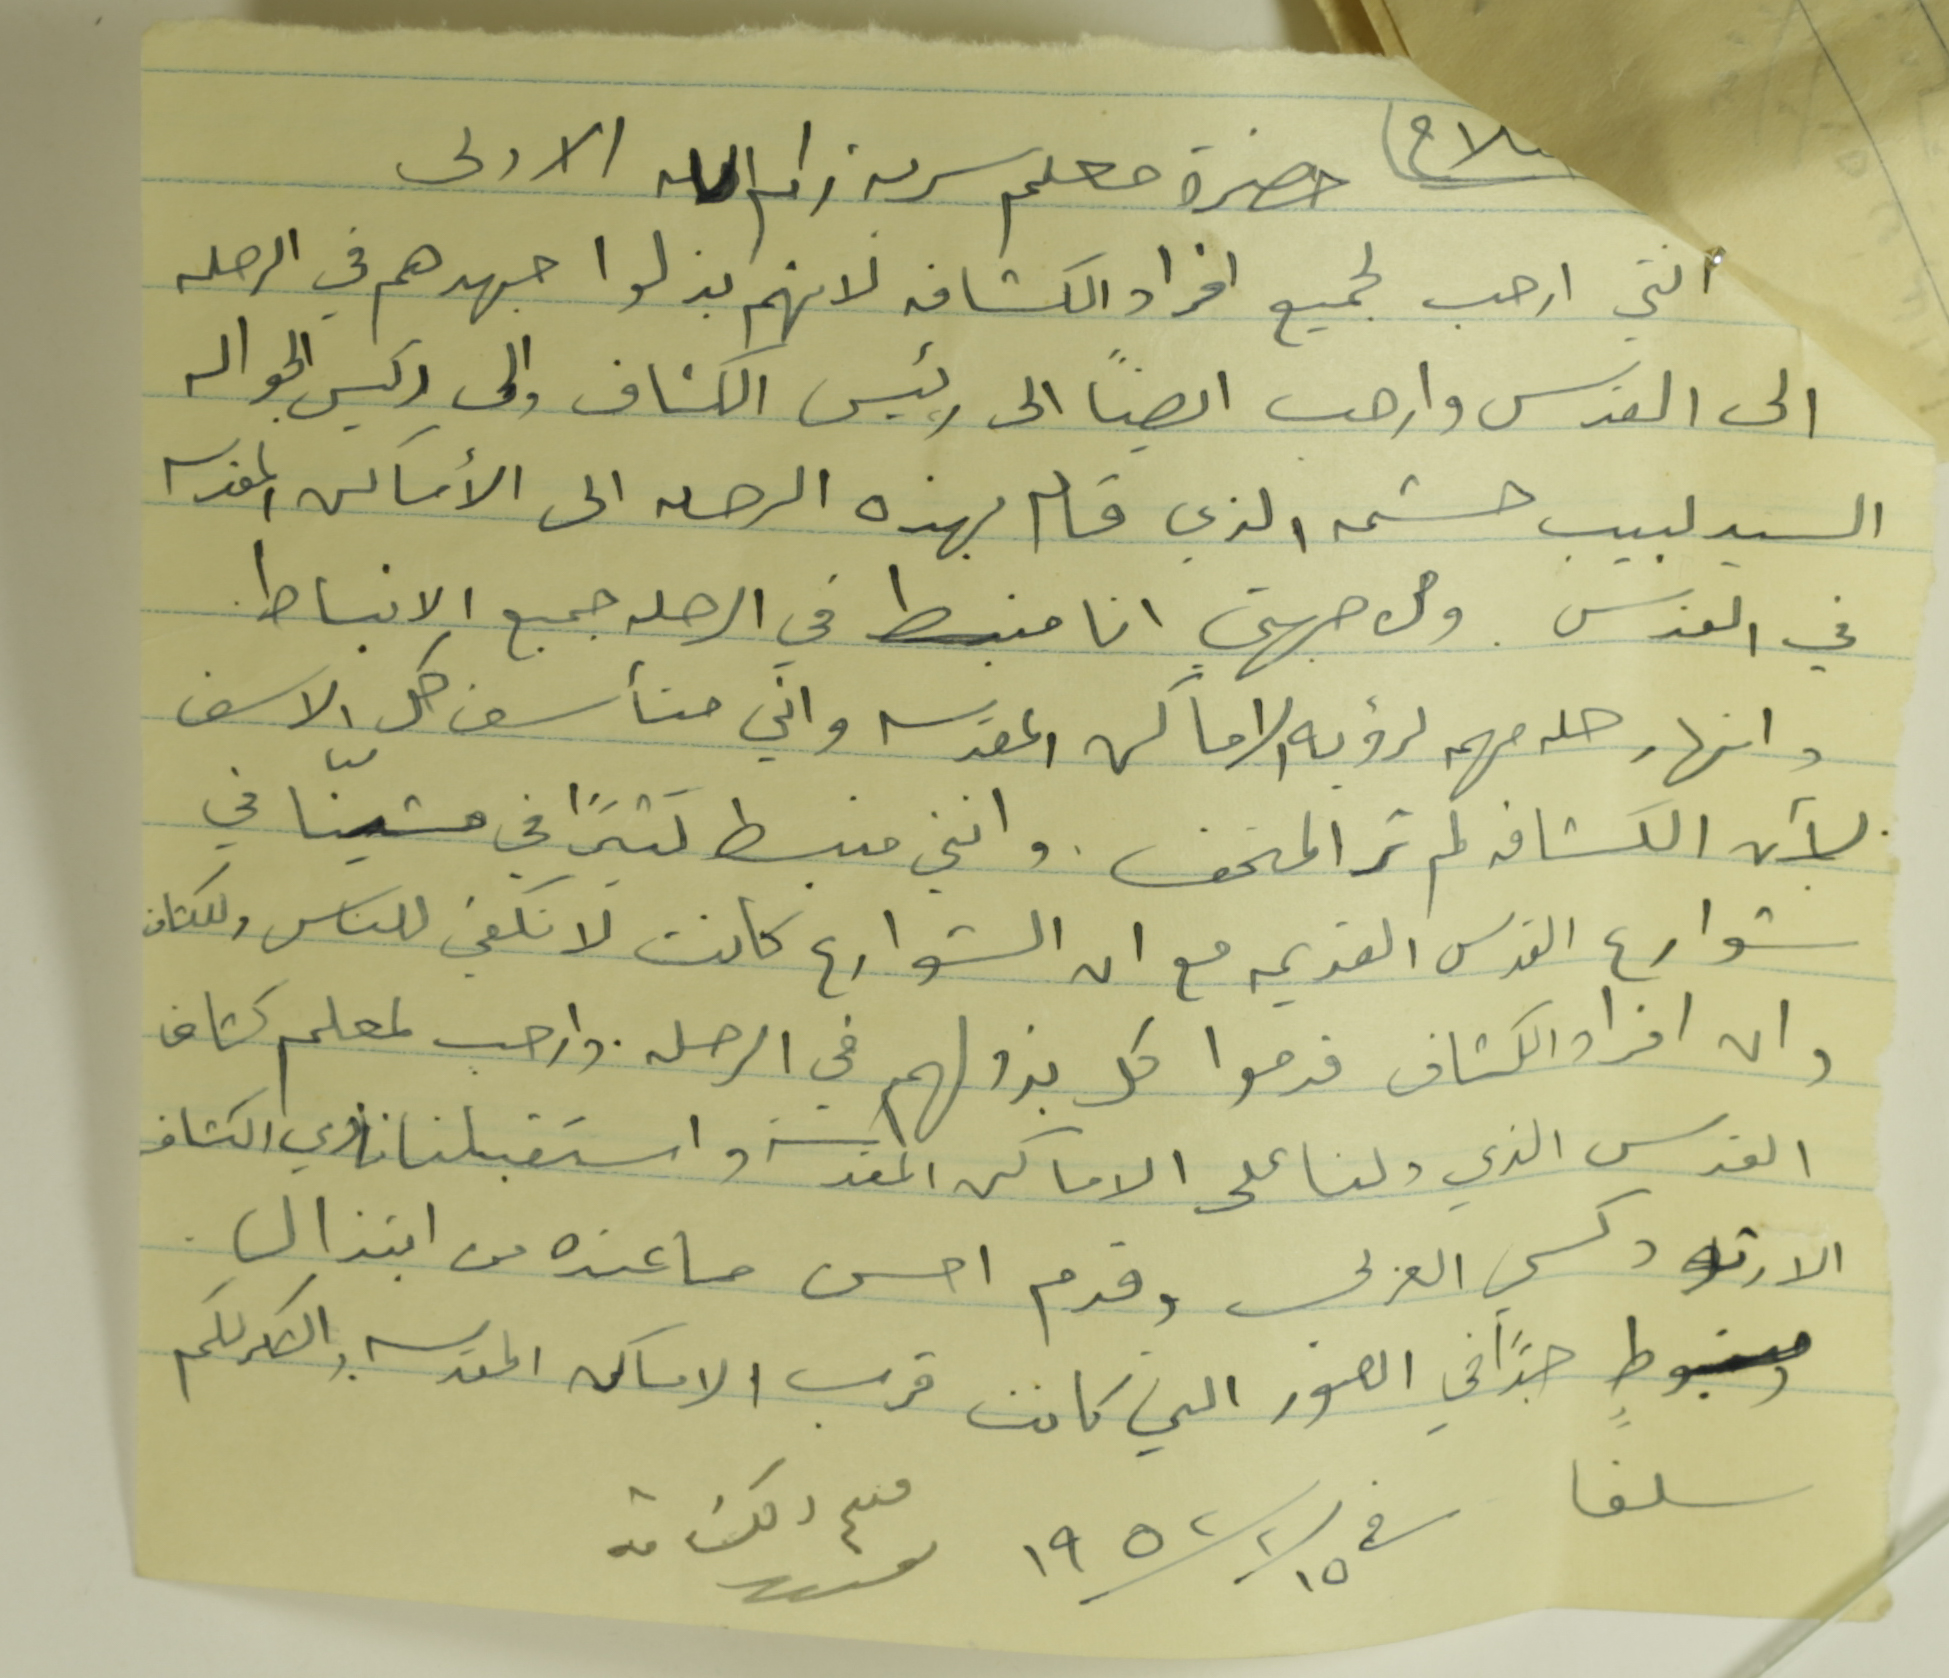 حضرة معلم سرية رام الله الاولى
انني ارحب لجميع افراد الكشافه لانهم بذلوا جهدهم في الرحله
الى القدس وارحب ايضاً الى رئيس الكشاف والى رئيس الجواله
السيد لبيب حشمه الذي قام بهذه الرحله الى الأماكن المقدسه
في القدس . ومن جهتي انا منبسط في الرحله جميع الانبساط .
وانها رحله مهمه لرؤيه الاماكن المقدسه واني متأسف كل الاسف
لأن الكشافه لم تر المتحف . وانني منبسط كثيرًا في مشينّا في
شوارع القدس القديمه مع ان الشوارع كانت لا تكفي للناس وللكشاف
وان افراد الكشاف قدموا كل بذولهم في الرحله . وارحب لمعلم كشاف
القدس الذي دلنا على الاماكن المقدسة واستقبلنا نادي الكشاف
الارثوذكسي العربي وقدم احسن ما عنده من ابتذال .
جدًا في الصور التي كانت قرب الاماكن المقدسه والشكر لكم
سلفا
في ١٥/٢/١٩٥٢